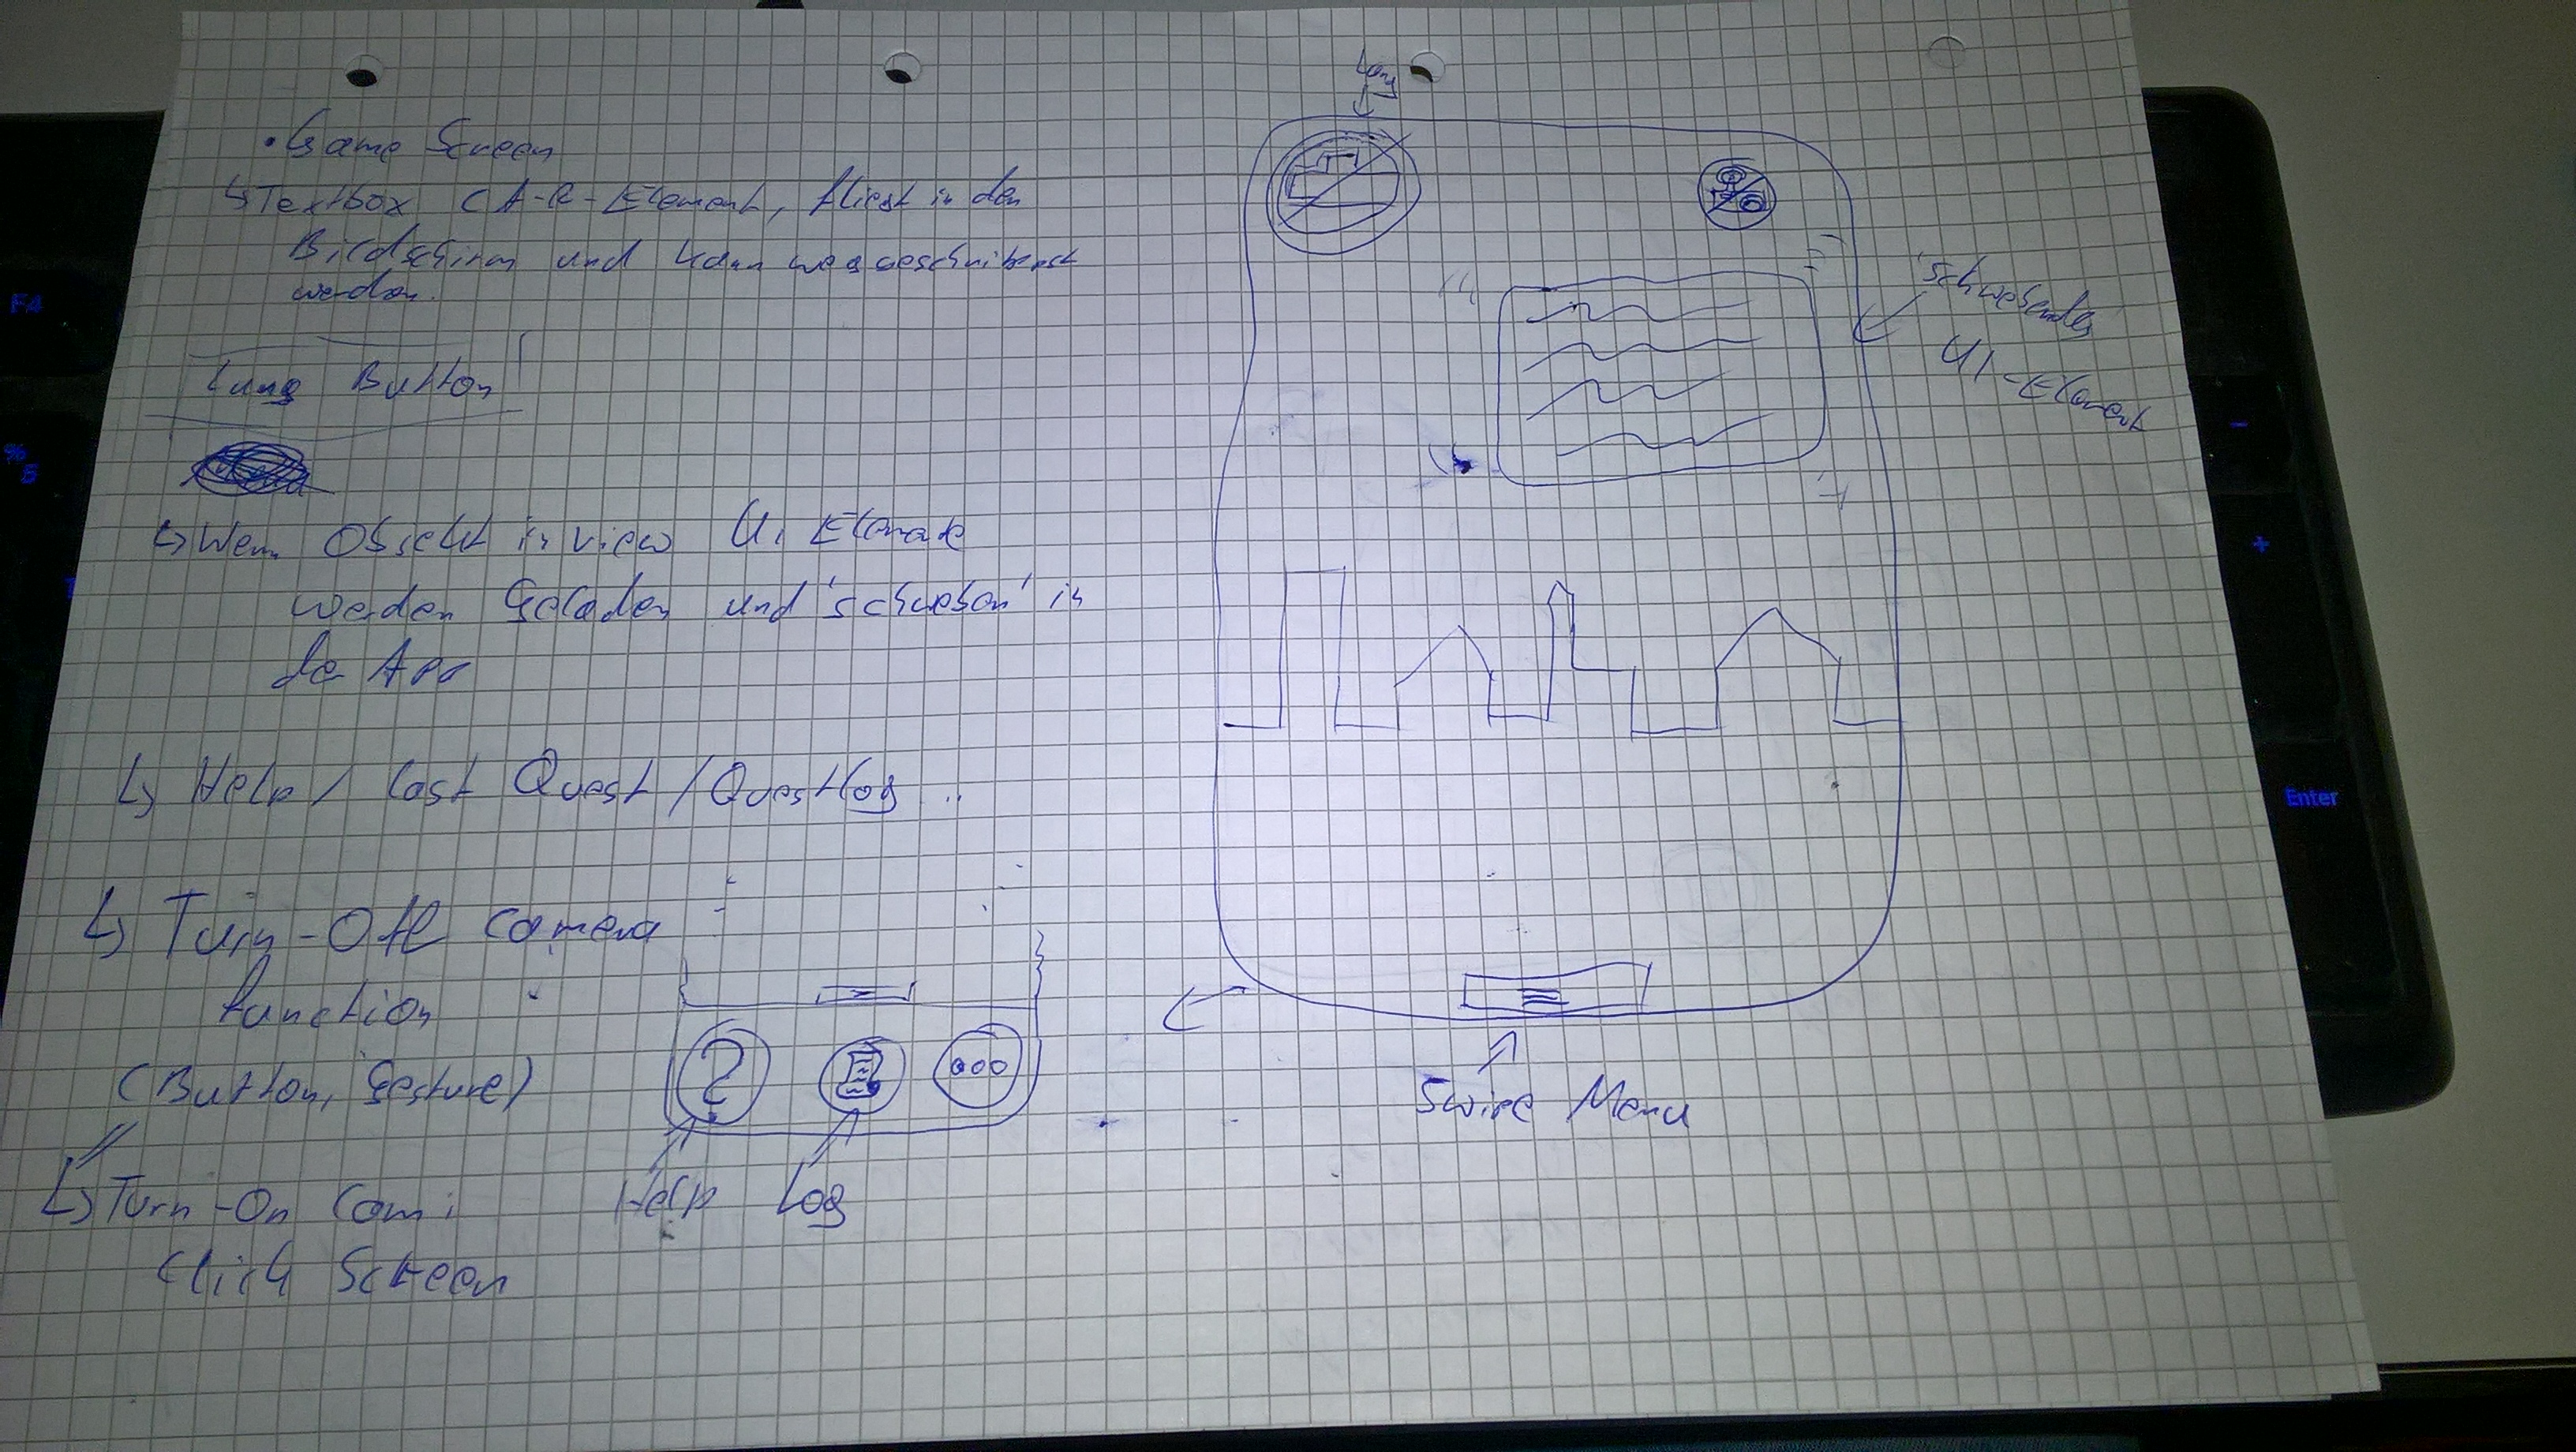 • Game Screen
↳ Textbox (A-R-Element, fliegt in den
Bildschirm und kann weggeschwipst
werden.
Lung Button
↳ Wenn Objekt in View Ui Elemate
werden Geladen und 'schweben' in
de App
↳ Help / Last Quest / Questlog ..
↳ Turn-Off Camera
function
(Button, Gesture)
↳ Turn-On Cam:
Click Screen
Help Log
?
Swipe Menu
Schwebende
UI-Element
Enter
+
-